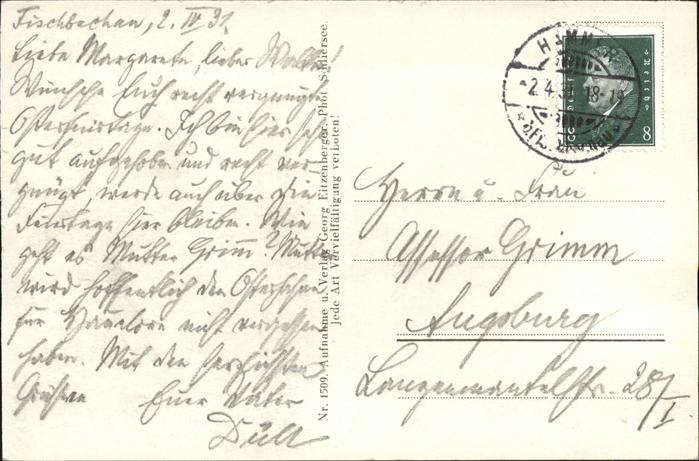 Fischbachau, 2. IV 31.
Liebe Margarete, lieber Walter!
Wünsche Euch recht vergnügte
Osterfeiertage. Ich bin hier sehr
gut aufgehoben und recht ver-
gnügt, werde auch über die
Feiertage hier bleiben. Wie
geht es Mutter Grimm? Mutter
wird hoffentlich den Osterhasen
für Hannelore nicht vergessen
haben. Mit den herzlichsten
Grüßen Euer Vater
Dült
Nr. 1509. Aufnahme u. Verlag Georg Eitzenberger, Phot. Schliersee.
Jede Art Vervielfältigung verboten!
HAMMER
-2.4.31. 18-19
Deutsches Reich
8 8
Herrn u. Frau
Assessor Grimm
Augsburg
Langenmantelstr. 28/I